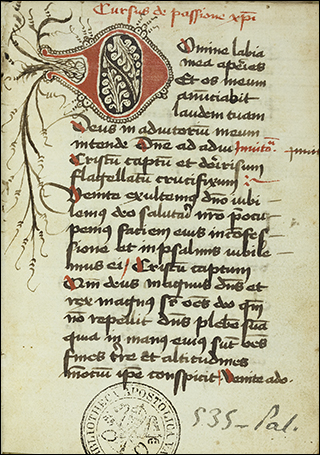 Cursus de passione xp̄i
Domine labia
mea ap̄ies
Et os meum
an̄uciabit
laudem tuam
Deus in adiutoriū meum
intende Dn̄e ad adiu Inuito
Cristū captū et derisum
flagellatū crucifixum
Venite exultemus dn̄o iubi
lemus deo salutari nr̄o p̄ocu
pemus faciem eius in cōfes
sione et in psalmis iubile
mus ei Cristū captum
Qm̄ deus magnus dn̄s et
rex magnus sr̄ oēs deo qm̄
no repellit dn̄s plebē suā
quia in manu eius sūt oēs
fines tr̄re et altitudines
mōtiū ip̄e conspicit Venite ado
BIBLIOTHECA APOSTOLICA
535 - Pal.